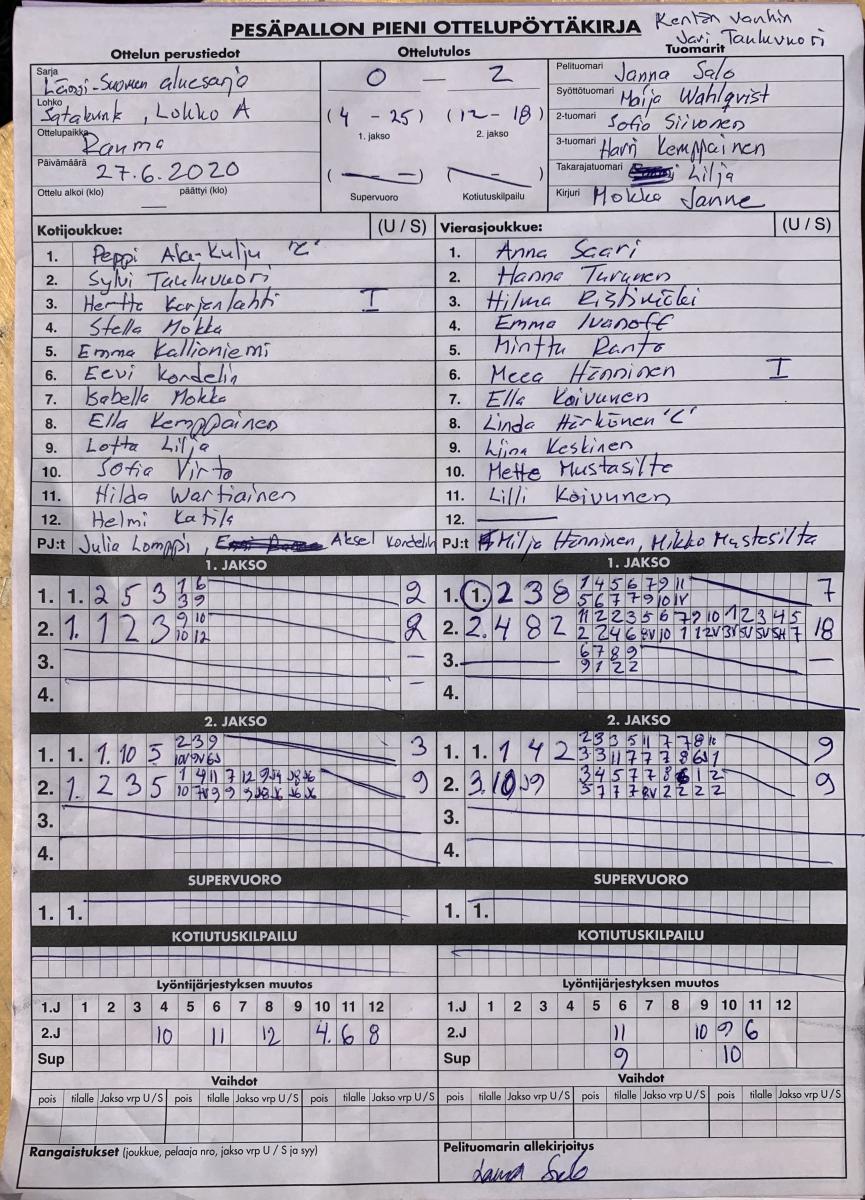 PESÄPALLON PIENI OTTELUPÖYTÄKIRJA
Kentän vanhin
Jari Tauluvuori
Ottelun perustiedot
Ottelutulos
Tuomarit
Sarja
Länsi-Suomen aluesarja
Lohko
Satakunta, Lohko A
Ottelupaikka
Rauma
Päivämäärä
27.6.2020
Ottelu alkoi (klo) päättyi (klo)
0 — 2
(4 - 25) (12 - 18)
1. jakso 2. jakso
Supervuoro Kotiutuskilpailu
Pelituomari Janna Salo
Syöttötuomari Maija Wahlqvist
2-tuomari Sofia Siivonen
3-tuomari Harri Kemppainen
Takarajatuomari Lilja
Kirjuri Mokka Janne
Kotijoukkue: (U / S)
1. Peppi Ala-Kulju "C"
2. Sylvi Tauluvuori
3. Hertta Karjenlahti I
4. Stella Mokka
5. Emma Kallioniemi
6. Eevi Kordelin
7. Isabella Mokka
8. Ella Kemppainen
9. Lotta Lilja
10. Sofia Virto
11. Hilda Wartiainen
12. Helmi Katila
PJ:t Julia Lomppi, Aksel Kordelin
Vierasjoukkue: (U / S)
1. Anna Saari
2. Hanna Turunen
3. Hilma Ristimäki
4. Emma Ivanoff
5. Minttu Ranto
6. Meea Hänninen I
7. Ella Koivunen
8. Linda Härkönen "C"
9. Liina Keskinen
10. Mette Mustasilta
11. Lilli Koivunen
12.
PJ:t Milja Hänninen, Mikko Mustasilta
1. JAKSO
1. 1. 2 5 3 1 6 2
3 9
2. 1. 1 2 3 9 10 2
10 12
3. –
4. –
1. JAKSO
1. 1. 2 3 8 1 4 5 6 7 9 11 7
5 6 7 7 9 10
2. 2. 4 8 2 11 2 2 3 5 6 7 9 10 1 2 3 4 5 18
3. 6 7 8 9 –
9 1 2 2
4.
2. JAKSO
1. 1. 1. 10 5 2 3 9 3
2. 1. 2 3 5 1 4 11 7 12 9
3.
4.
2. JAKSO
1. 1. 1 4 2 2 3 3 5 11 7 7 8 9
3 3 11 7 7 7 8
2. 3. 10 3 4 5 7 7 8 6 1 2 9
5 7 7 7 8V 2 2 2 2
3.
4.
SUPERVUORO
1. 1.
SUPERVUORO
1. 1.
KOTIUTUSKILPAILU
KOTIUTUSKILPAILU
Lyöntijärjestyksen muutos
1.J 1 2 3 4 5 6 7 8 9 10 11 12
2.J 10 11 12 4. 6 8
Sup
Lyöntijärjestyksen muutos
1.J 1 2 3 4 5 6 7 8 9 10 11 12
2.J 11 10 9 6
Sup 9 10
Vaihdot
pois tilalle Jakso vrp U / S pois tilalle Jakso vrp U / S pois tilalle Jakso vrp U / S
Vaihdot
pois tilalle Jakso vrp U / S pois tilalle Jakso vrp U / S pois tilalle Jakso vrp U / S
Rangaistukset (joukkue, pelaaja nro, jakso vrp U / S ja syy)
Pelituomarin allekirjoitus
Janna Salo